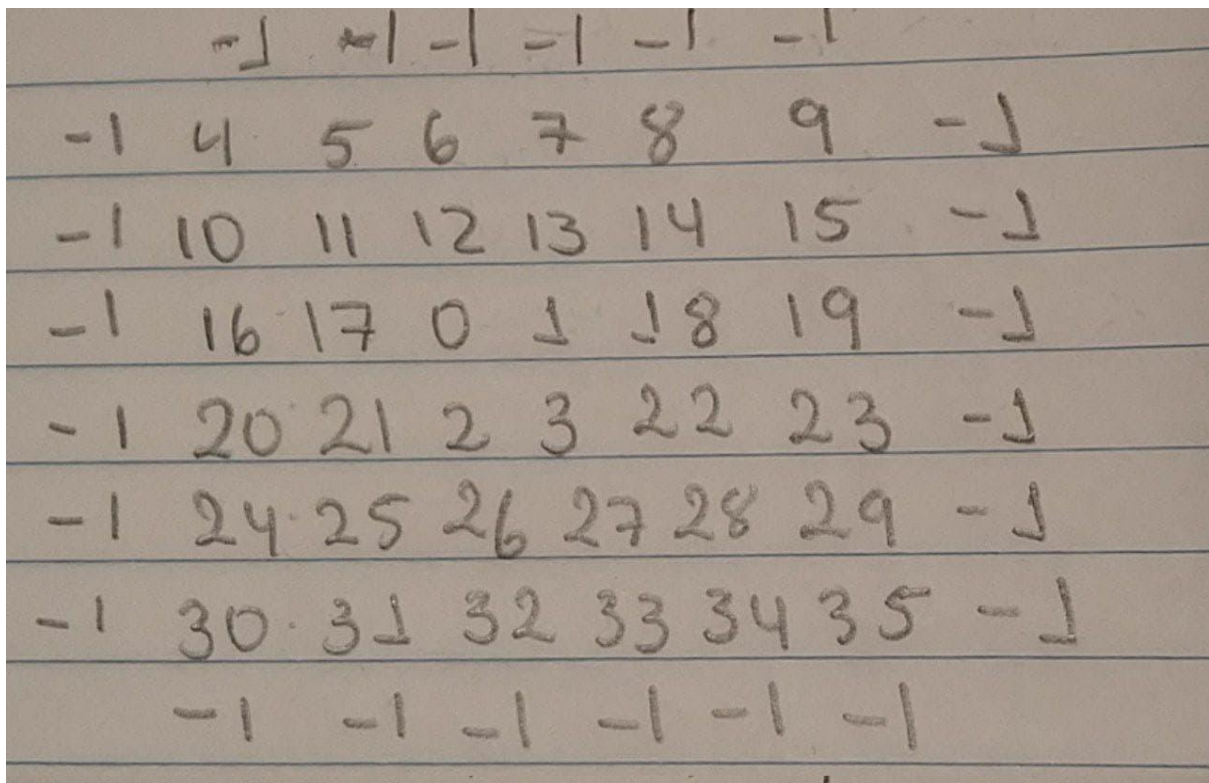 -1 -1 -1 -1 -1 -1
-1 4 5 6 7 8 9 -1
-1 10 11 12 13 14 15 -1
-1 16 17 0 1 18 19 -1
-1 20 21 2 3 22 23 -1
-1 24 25 26 27 28 29 -1
-1 30 31 32 33 34 35 -1
-1 -1 -1 -1 -1 -1